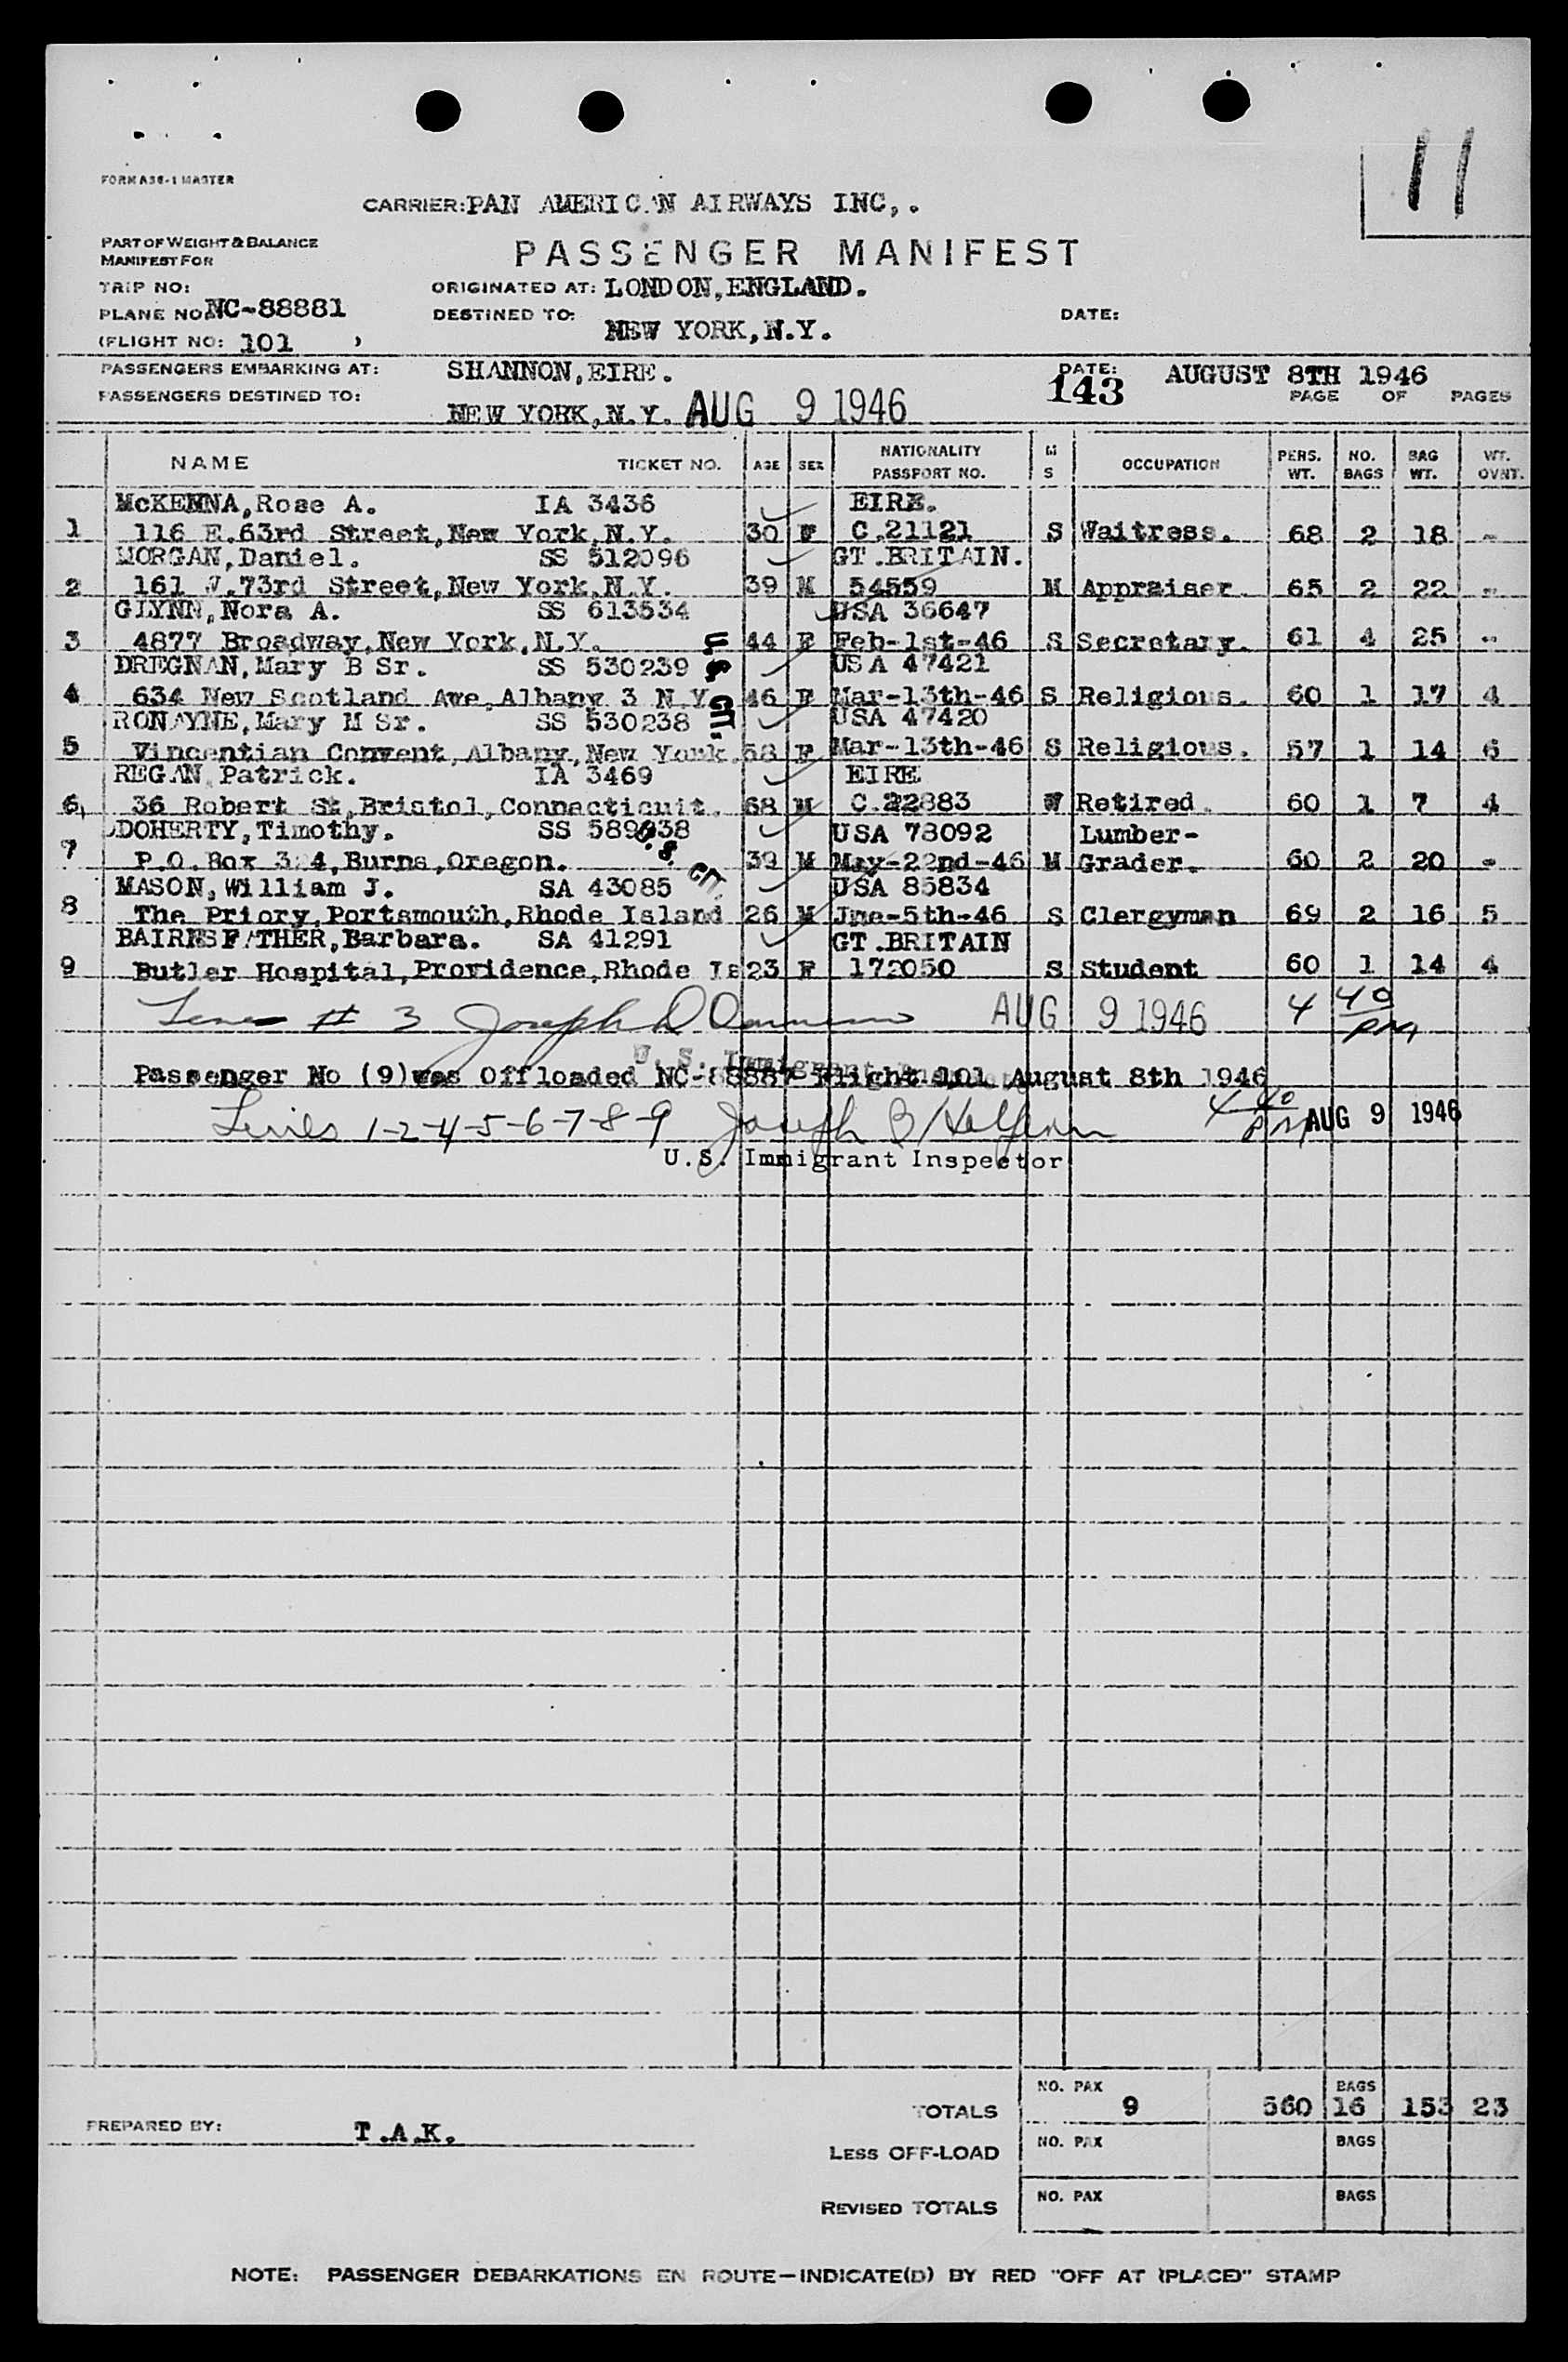 11
FORM A36-1 MASTER
CARRIER: PAN AMERICAN AIRWAYS INC,.
PART OF WEIGHT & BALANCE
MANIFEST FOR
PASSENGER MANIFEST
TRIP NO:
ORIGINATED AT: LONDON,ENGLAND.
PLANE NO: NC-88881
DESTINED TO: NEW YORK,N.Y.
DATE:
(FLIGHT NO: 101 )
PASSENGERS EMBARKING AT: SHANNON,EIRE.
DATE: AUGUST 8TH 1946
143
PASSENGERS DESTINED TO: NEW YORK,N.Y. AUG 9 1946
PAGE OF PAGES
NAME TICKET NO. AGE SEX NATIONALITY PASSPORT NO. M S OCCUPATION PERS. WT. NO. BAGS BAG WT. WT. OVNT.
McKENNA,Rose A. IA 3436 EIRE.
1 116 E.63rd Street,New York,N.Y. 30 F C.21121 S Waitress. 68 2 18 -
MORGAN,Daniel. SS 512096 GT.BRITAIN.
2 161 W.73rd Street,New York,N.Y. 39 M 54559 M Appraiser. 65 2 22 -
GLYNN,Nora A. SS 613534 USA 36647
3 4877 Broadway,New York,N.Y. 44 F Feb-1st-46 S Secretary. 61 4 25 -
DREGNAN,Mary B Sr. SS 530239 USA 47421
U.S. CIT.
4 634 New Scotland Ave,Albany 3 N.Y. 46 F Mar-13th-46 S Religious. 60 1 17 4
RONAYNE,Mary M Sr. SS 530238 USA 47420
5 Vincentian Convent,Albany,New York. 58 F Mar-13th-46 S Religious. 57 1 14 6
REGAN,Patrick. IA 3469 EIRE
6, 36 Robert St,Bristol,Connecticuit. 68 M C.22883 W Retired. 60 1 7 4
DOHERTY,Timothy. SS USA 78092 Lumber-
U.S. CIT.
7 P.O.Box Burns,Oregon. 39 M May-22nd-46 M Grader. 60 2 20 -
MASON,William J. SA 43085 USA 85834
8 The Priory,Portsmouth,Rhode Island 26 M Jne-5th-46 S Clergyman 69 2 16 5
BAIRNSFATHER,Barbara. SA 41291 GT.BRITAIN
9 Butler Hospital,Providence,Rhode Is 23 F 172050 S Student 60 1 14 4
# 3 Joseph D AUG 9 1946 4 40 PM
U. S. Immigrant
Passenger No (9)was Offloaded Flight 101 August 8th 1946
Lines 1-2-4-5-6-7-8-9 Joseph B 4 40 PM AUG 9 1946
U.S. Immigrant Inspector
NO. PAX BAGS
TOTALS 9 560 16 153 23
PREPARED BY: T.A.K.
LESS OFF-LOAD NO. PAX BAGS
REVISED TOTALS NO. PAX BAGS
NOTE: PASSENGER DEBARKATIONS EN ROUTE—INDICATE(D) BY RED "OFF AT (PLACE)" STAMP